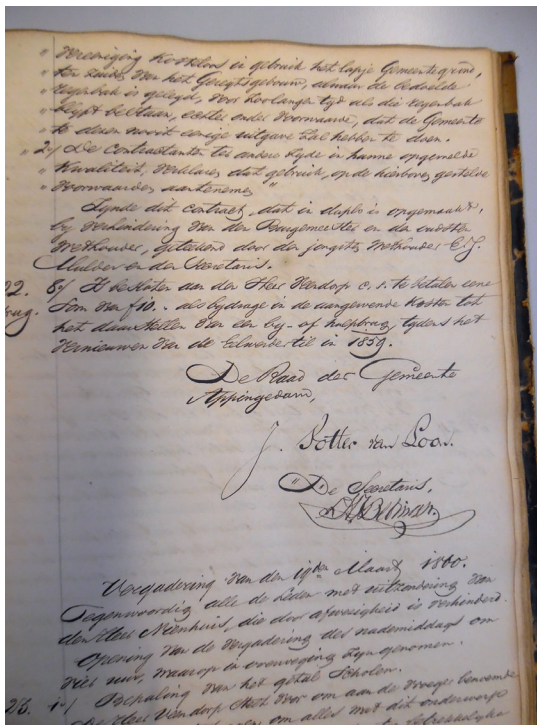 " Vereeniging kosteloos in gebruik het lapje Gemeentegrond,
" ten zuiden van het Geregtsgebouw, waarin de bedoelde
" regenbak is gelegd, voor zoo lange tijd als die regenbak
" blijft bestaan, echter onder voorwaarde, dat de Gemeente
" te dezen nooit eenige uitgave zal hebben te doen.
" 2o/ De Contractanten ter andere zyde in hunne opgemelde
" Kwaliteit, verklaren dat gebruik, op de hierboven gestelde
" voorwaarden aantenemen"
Zynde dit contract, dat in duplo is opgemaakt,
by verhindering van den Burgemeester en den oudsten
Wethouder, geteekend door den jongsten Wethouder E.J.
Mulder en den Secretaris.
22. 8o/ Is besloten aan den Heer Vendorp c.s. te betalen eene
brug. Som van f10.- als bydrage in de aangewende kosten tot
het daarstellen van een by- of hulpbrug tydens het
vernieuwen van de Elwerdertil in 1859.
De Raad der Gemeente
Appingedam,
J. Potter van Loon.
De Secretaris,
Vergadering van den 19den Maart 1860.
Tegenwoordig alle de Leden met uitzondering van
den Heer Nienhuis, die door afwezigheid is verhinderd.
Opening van de vergadering des nademiddags om
vier uur, waarop in overweging zyn genomen.
23. 1o/ Bepaling van het getal Scholen.
De Heer Vendorp stelt voor om aan de vroeger benoemde
om alles met dit onderwerp